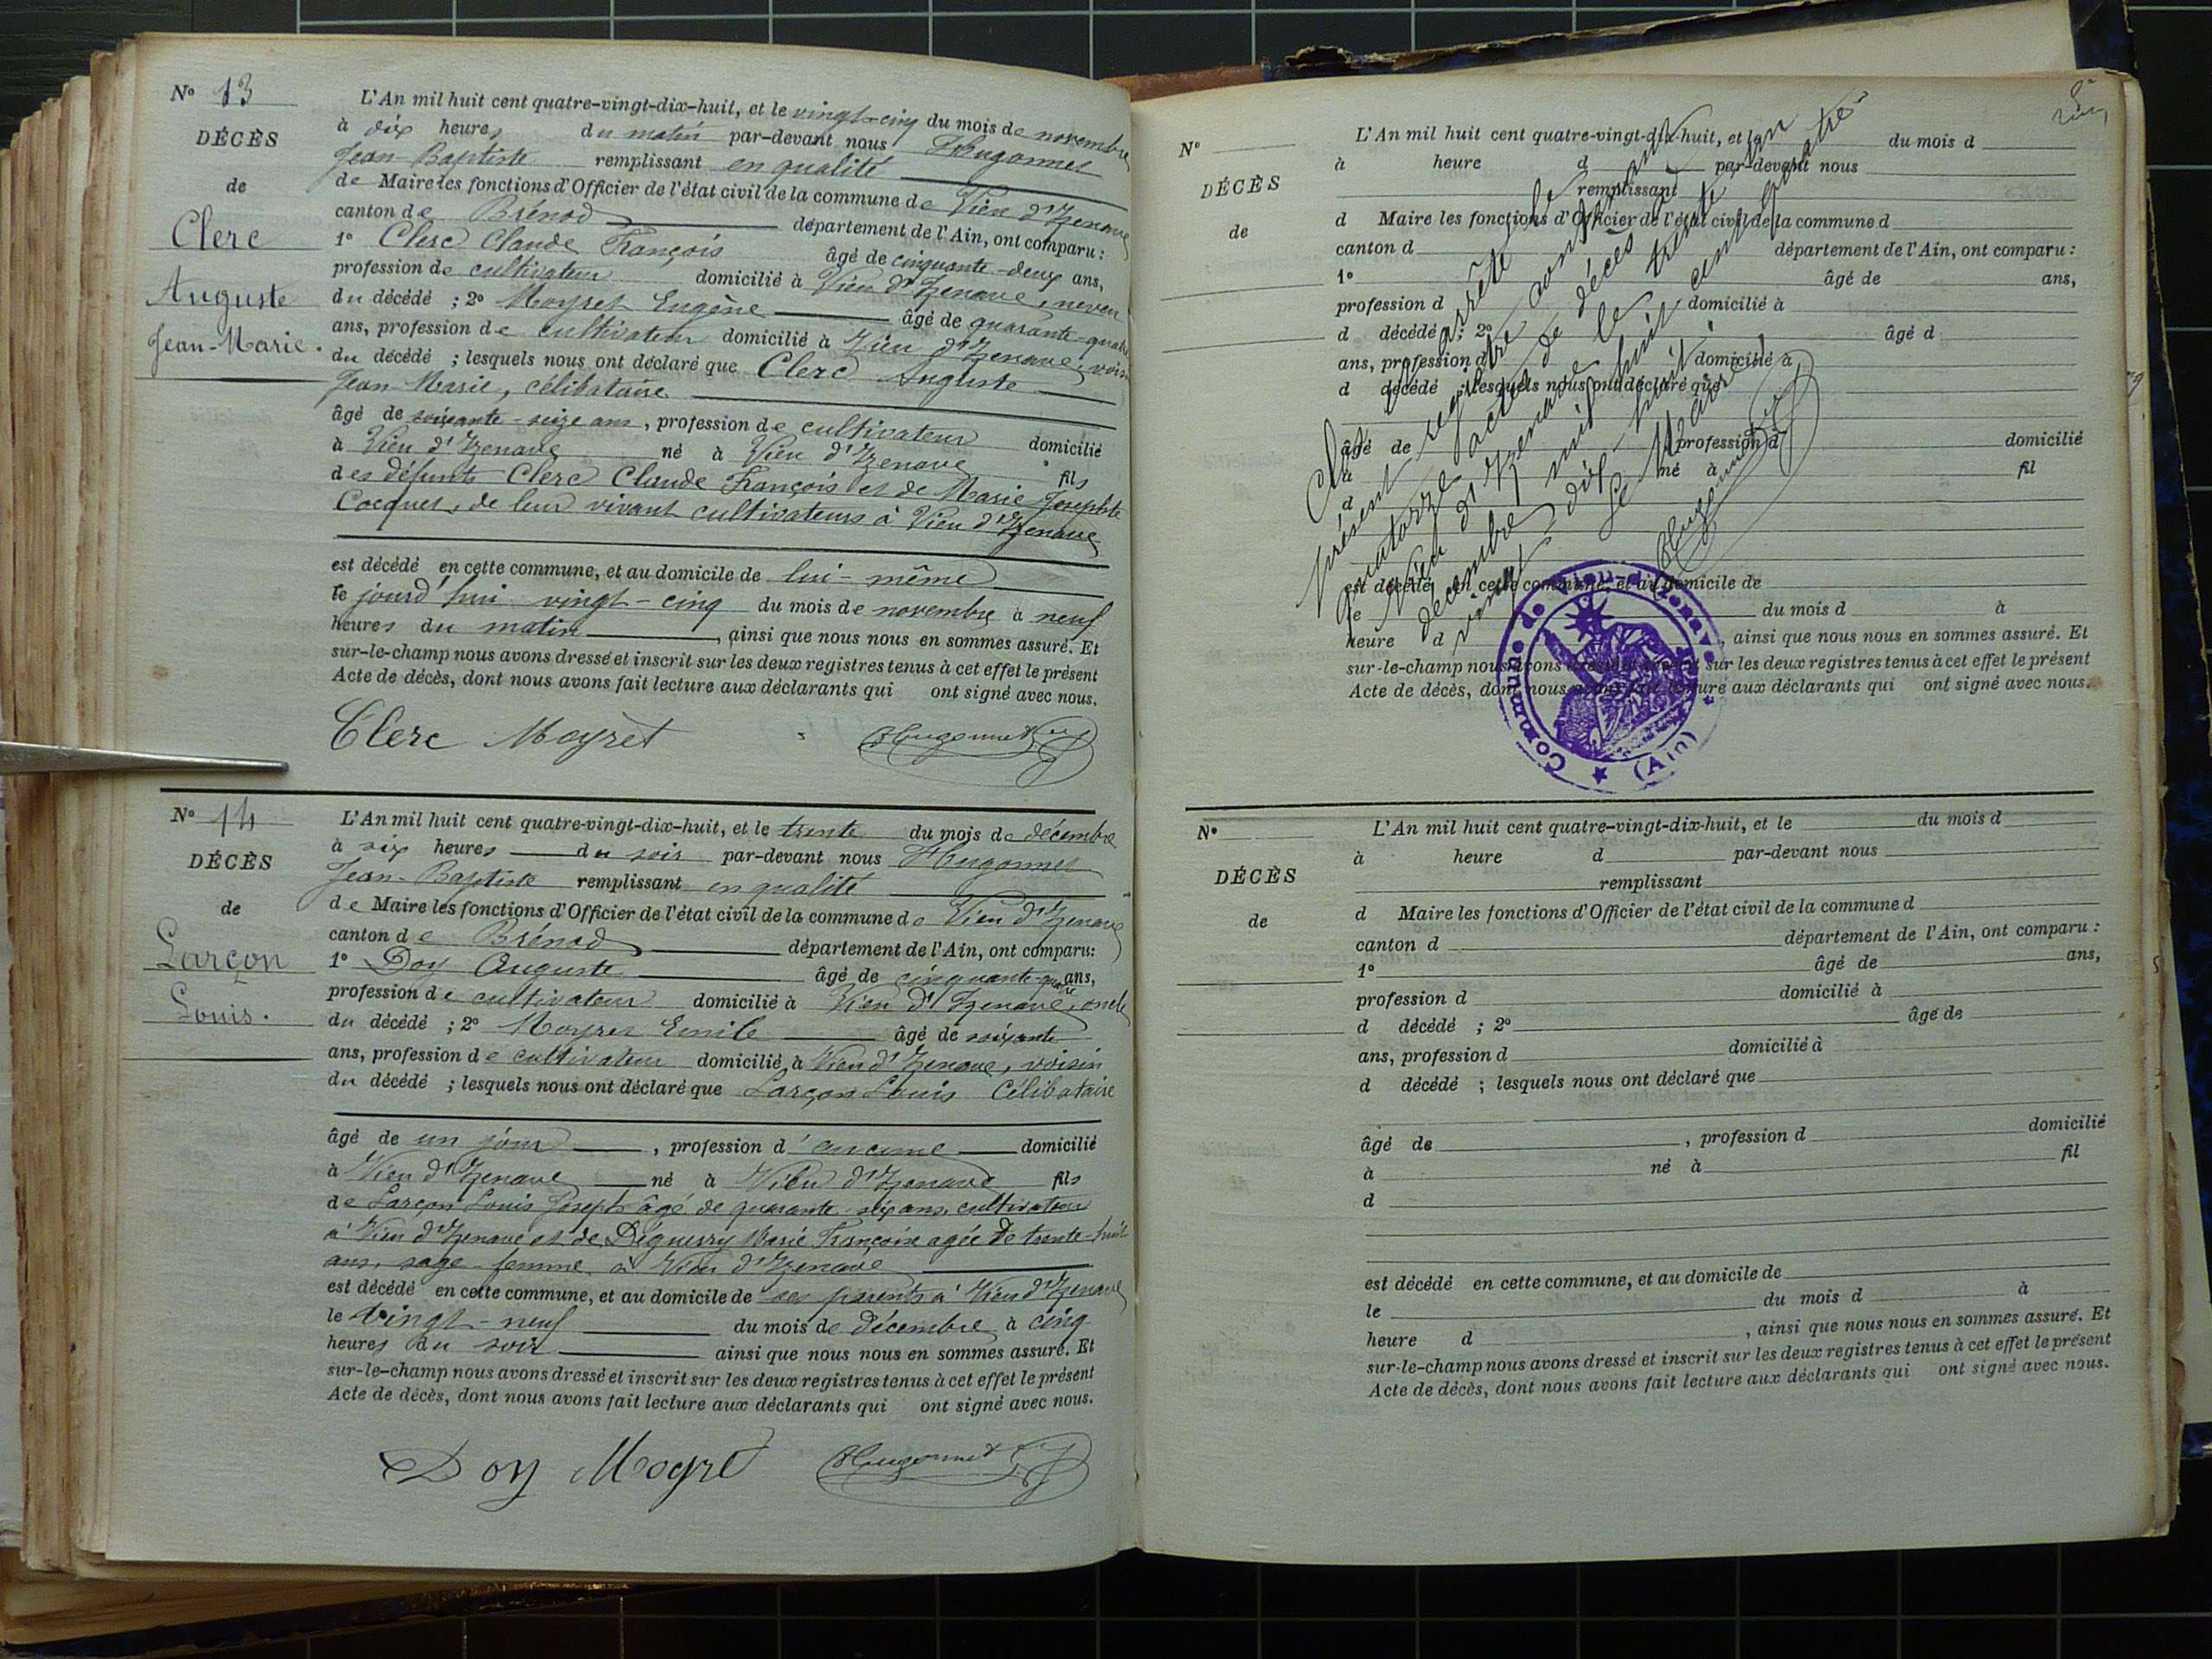 N° 13
DÉCÈS
de
Clerc
Auguste
Jean-Marie.
L'An mil huit cent quatre-vingt-dix-huit, et le vingt-cinq du mois de novembre
à dix heures du matin par-devant nous Hugonnet
Jean-Baptiste remplissant en qualité
de Maire les fonctions d'Officier de l'état civil de la commune de Vieu d'Izenave
canton de Brénod département de l'Ain, ont comparu :
1° Clerc Claude François âgé de cinquante-deux ans,
profession de cultivateur domicilié à Vieu d'Izenave, neveu
du décédé ; 2° Moyret Eugène âgé de quarante-quatre
ans, profession de cultivateur domicilié à Vieu d'Izenave, voisin
du décédé ; lesquels nous ont déclaré que Clerc Auguste
Jean-Marie, célibataire
âgé de soixante-seize ans, profession de cultivateur domicilié
à Vieu d'Izenave né à Vieu d'Izenave fils
des défunts Clerc Claude François et de Marie Josephte
Cocquet, de leur vivant cultivateurs à Vieu d'Izenave
est décédé en cette commune, et au domicile de lui-même
le jourd'hui vingt-cinq du mois de novembre à neuf
heures du matin, ainsi que nous nous en sommes assuré. Et
sur-le-champ nous avons dressé et inscrit sur les deux registres tenus à cet effet le présent
Acte de décès, dont nous avons fait lecture aux déclarants qui ont signé avec nous.
Clerc Moyret Hugonnet
N° 14
DÉCÈS
de
Larçon
Louis.
L'An mil huit cent quatre-vingt-dix-huit, et le trente du mois de décembre
à six heures du soir par-devant nous Hugonnet
Jean-Baptiste remplissant en qualité
de Maire les fonctions d'Officier de l'état civil de la commune de Vieu d'Izenave
canton de Brénod département de l'Ain, ont comparu :
1° Doy Auguste âgé de cinquante-quatre ans,
profession de cultivateur domicilié à Vieu d'Izenave, oncle
du décédé ; 2° Moyret Emile âgé de soixante
ans, profession de cultivateur domicilié à Vieu d'Izenave, voisin
du décédé ; lesquels nous ont déclaré que Larçon Louis Célibataire
âgé de un jour, profession d'aucune domicilié
à Vieu d'Izenave né à Vieu d'Izenave fils
de Larçon Louis Joseph âgé de quarante-six ans, cultivateur
à Vieu d'Izenave et de Déguerry Marie Françoise agée de trente-huit
ans, sage-femme à Vieu d'Izenave
est décédé en cette commune, et au domicile de ses parents à Vieu d'Izenave
le vingt-neuf du mois de décembre à cinq
heures du soir ainsi que nous nous en sommes assuré. Et
sur-le-champ nous avons dressé et inscrit sur les deux registres tenus à cet effet le présent
Acte de décès, dont nous avons fait lecture aux déclarants qui ont signé avec nous.
Doy Moyret Hugonnet
N°
DÉCÈS
de
L'An mil huit cent quatre-vingt-dix-huit, et le du mois d
à heure d par-devant nous
remplissant
d Maire les fonctions d'Officier de l'état civil de la commune d
canton d département de l'Ain, ont comparu :
1° âgé de ans,
profession d domicilié à
d décédé ; 2° âgé d
ans, profession d domicilié à
d décédé ; lesquels nous ont déclaré que
âgé de profession d domicilié
à né à fil
d
est décédé en cette commune, et au domicile de
le du mois d à
heure d , ainsi que nous nous en sommes assuré. Et
sur-le-champ nous avons dressé et inscrit sur les deux registres tenus à cet effet le présent
Acte de décès, dont nous avons fait lecture aux déclarants qui ont signé avec nous.
Clos, arrêté le
présent registre contenant
quatorze actes de décès
Vieu d'Izenave le trente un
décembre mil huit cent quatre
vingt-dix-huit.
Le Maire
Hugonnet
Commune de Vieu-d'Izenave (Ain)
N°
DÉCÈS
de
L'An mil huit cent quatre-vingt-dix-huit, et le du mois d
à heure d par-devant nous
remplissant
d Maire les fonctions d'Officier de l'état civil de la commune d
canton d département de l'Ain, ont comparu :
1° âgé de ans,
profession d domicilié à
d décédé ; 2° âgé de
ans, profession d domicilié à
d décédé ; lesquels nous ont déclaré que
âgé de , profession d domicilié
à né à fil
d
est décédé en cette commune, et au domicile de
le du mois d à
heure d , ainsi que nous nous en sommes assuré. Et
sur-le-champ nous avons dressé et inscrit sur les deux registres tenus à cet effet le présent
Acte de décès, dont nous avons fait lecture aux déclarants qui ont signé avec nous.